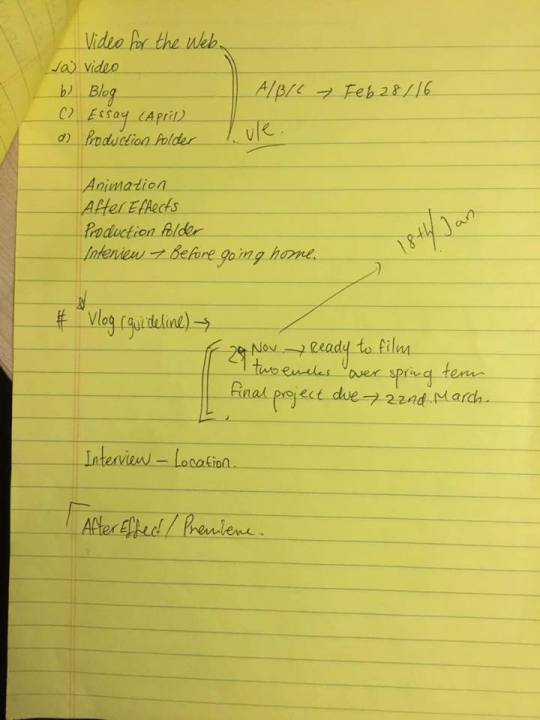 Video for the Web
a) video
b) Blog
A/B/C → Feb 28/16
c) Essay (April)
d) Production folder
v/e.
Animation
After Effects
Production folder
Interview → Before going home.
18th/Jan
# Vlog (guideline) →
29 Nov → Ready to film
over spring term
final project due → 22nd March.
Interview – Location.
After Effect / Premiere.